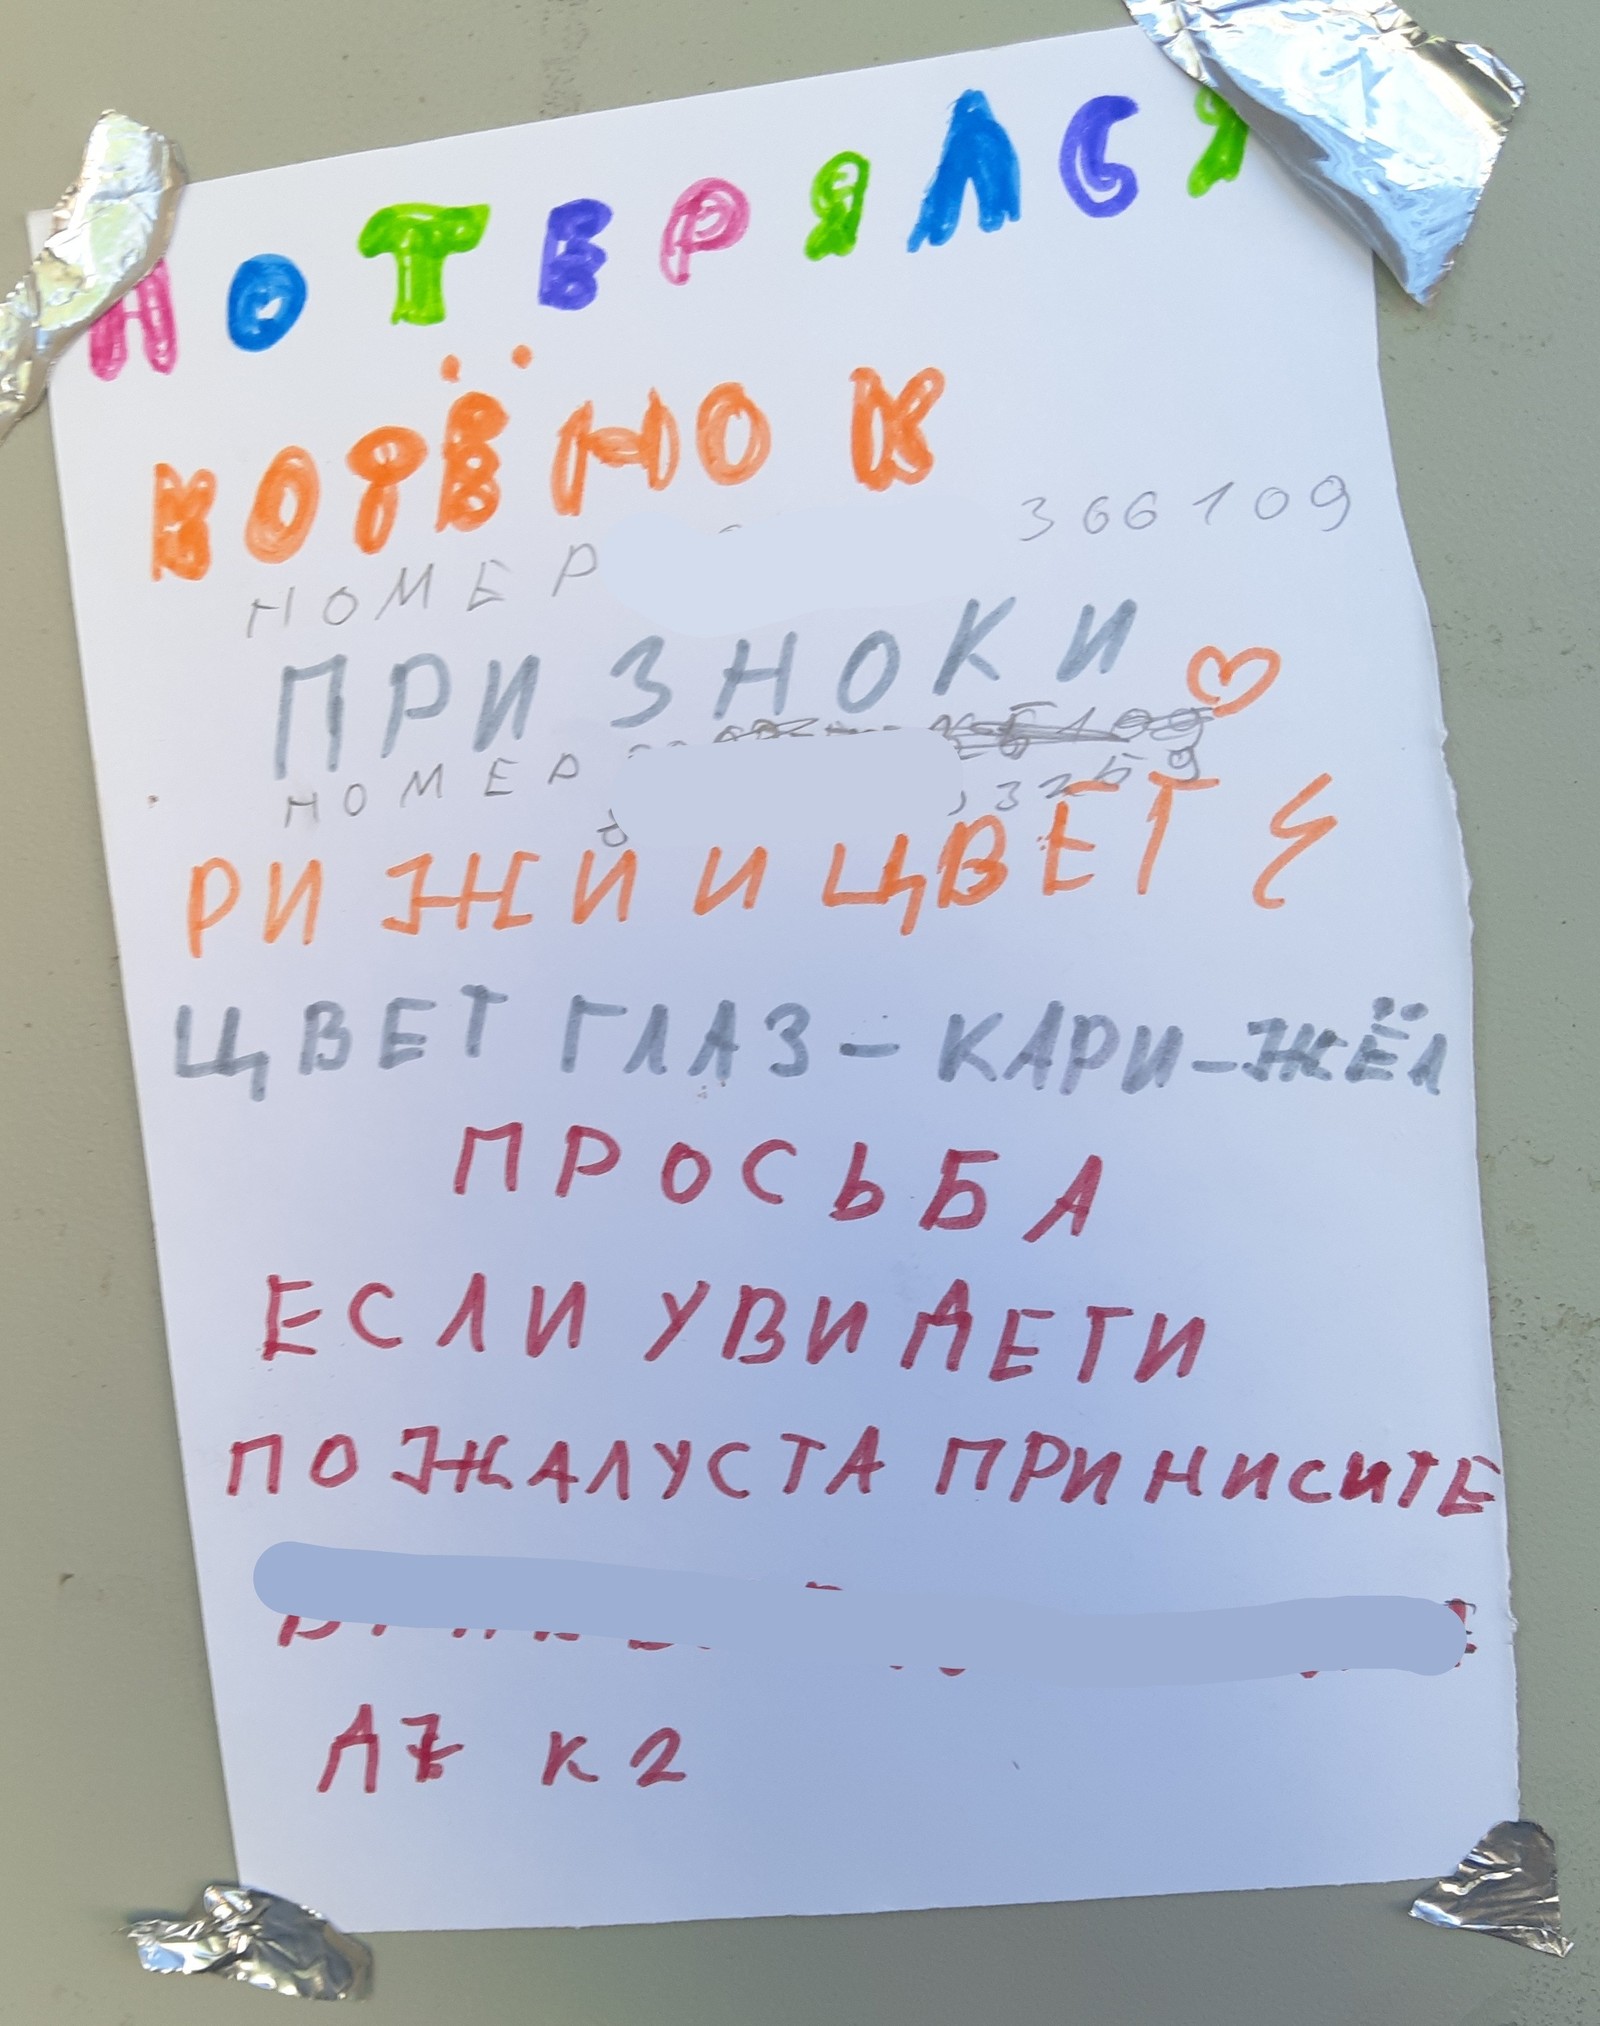 ПОТЕРЯЛСЯ
КОТЁНОК
НОМЕР 366109
ПРИЗНОКИ
НОМЕР
РИЖИЙ ЦВЕТ
ЦВЕТ ГЛАЗ - КАРИ-ЖЁЛ
ПРОСЬБА
ЕСЛИ УВИДЕТИ
ПОЖАЛУСТА ПРИНИСИТЕ
Д7 К2